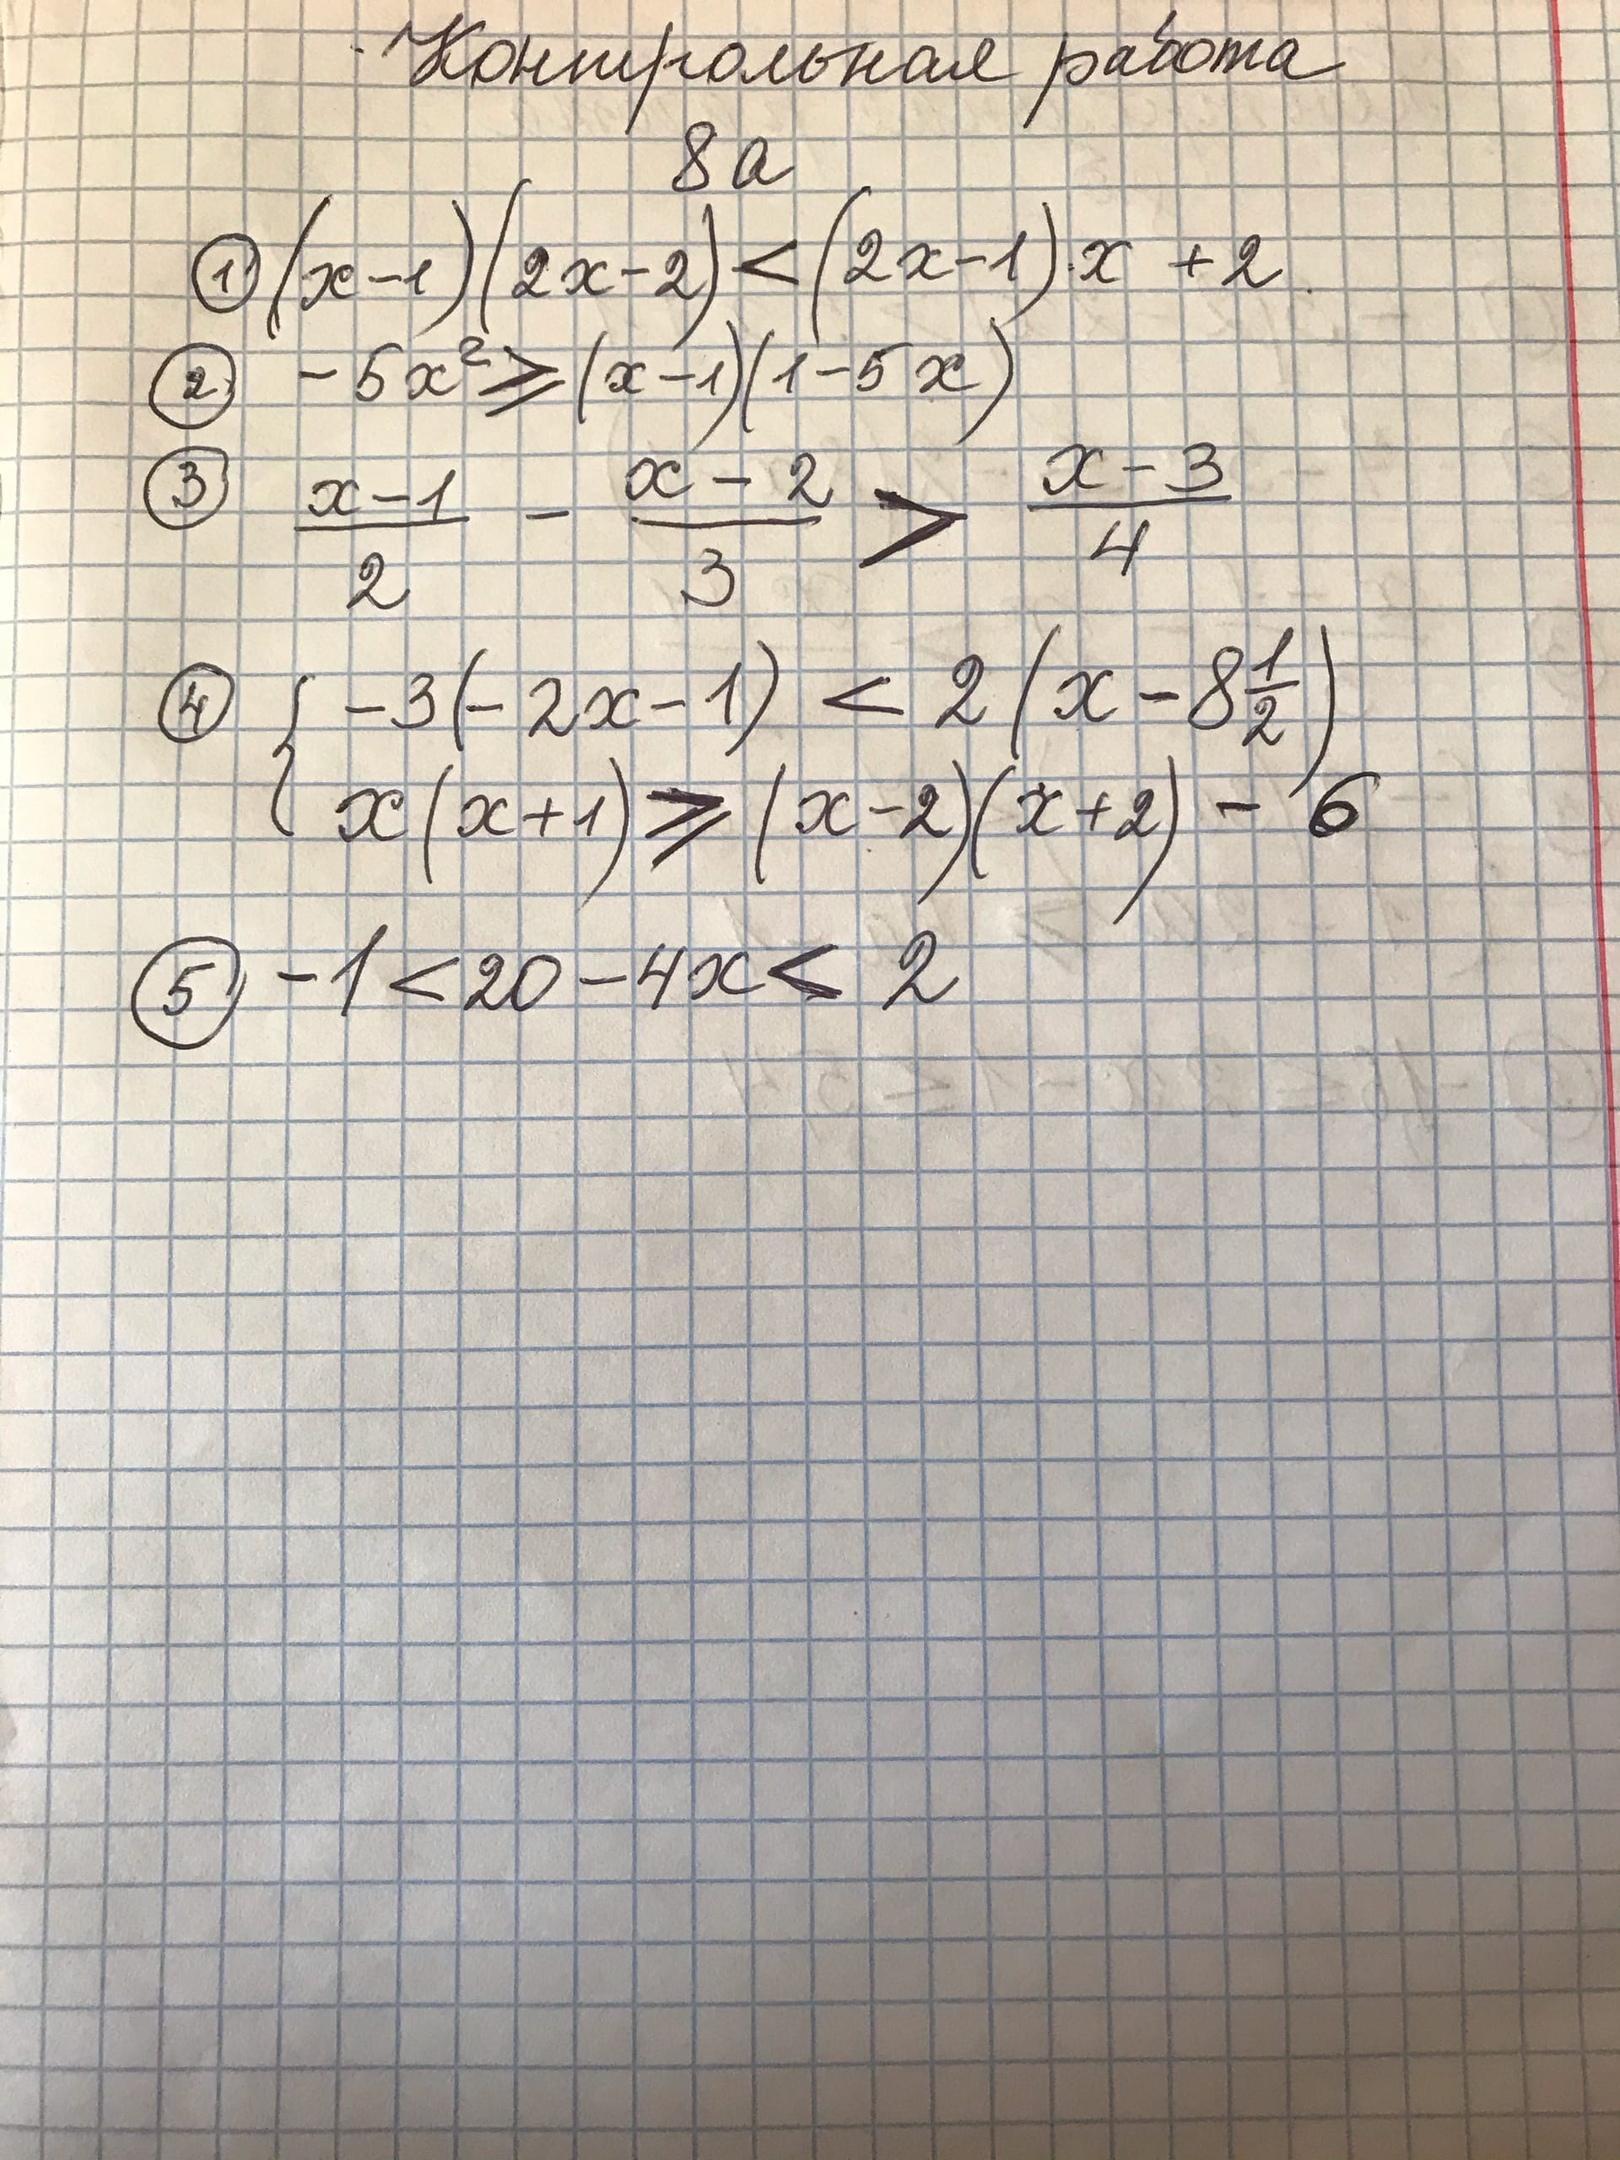 Контрольная работа
8а
① (x-1)(2x-2)<(2x-1)·x +2
② -5x²⩾(x-1)(1-5x)
③ (x-1)/2 - (x-2)/3 > (x-3)/4
④ { -3(-2x-1) < 2(x-8 1/2)
x(x+1)⩾(x-2)(x+2) - 6
⑤ -1<20-4x< 2